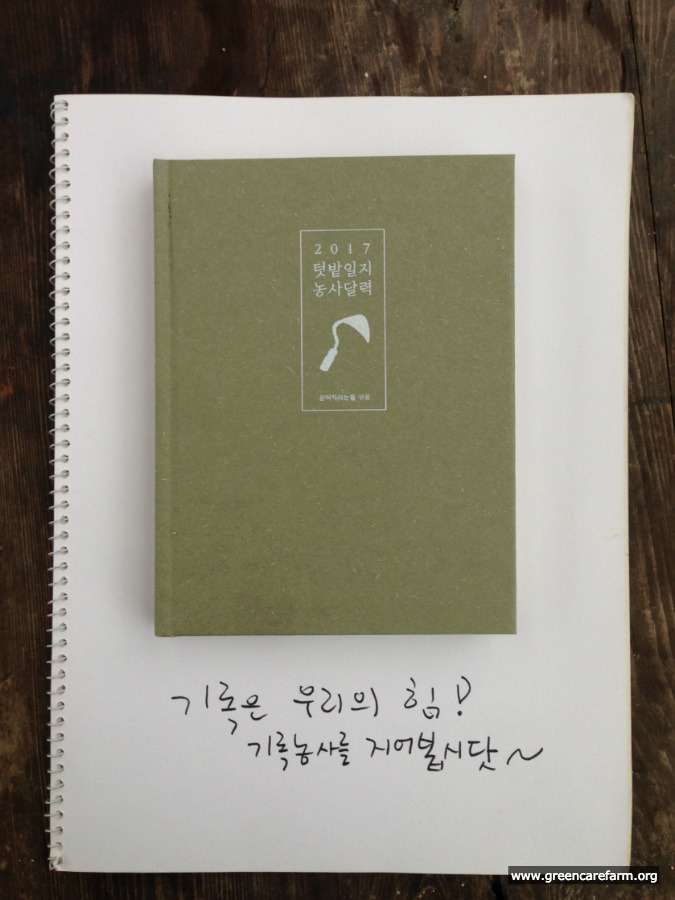 2017
텃밭일지
농사달력
들녘 엮음
기록은 우리의 힘!
기록농사를 지어봅시닷~
www.greencarefarm.org